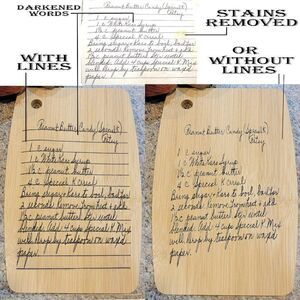 DARKENED
WORDS
STAINS
REMOVED
WITH
LINES
OR
WITHOUT
LINES
Peanut Butter Candy (Special K)
Patsy
1 C sugar
1 C White Karo Syrup
1½ C peanut butter
4 C Special K Cereal
Bring sugar + Karo to boil, boil for
2 seconds. Remove from heat & add
1½ C peanut butter. Stir until
blended. Add 4 cups Special K. Mix
well. Drop by teaspoon on waxed
paper.
Peanut Butter Candy (Special K)
Patsy
1 C sugar
1 C White Karo Syrup
1½ C peanut butter
4 C Special K Cereal
Bring sugar + Karo to boil, boil for
2 seconds. Remove from heat & add
1½ C peanut butter. Stir until
blended. Add 4 cups Special K. Mix
well. Drop by teaspoon on waxed
paper.
Peanut Butter Candy (Special K)
Patsy
1 C sugar
1 C White Karo Syrup
1½ C peanut butter
4 C Special K Cereal
Bring sugar + Karo to boil, boil for
2 seconds. Remove from heat & add
1½ C peanut butter. Stir until
blended. Add 4 cups Special K. Mix
well. Drop by teaspoon on waxed
paper.